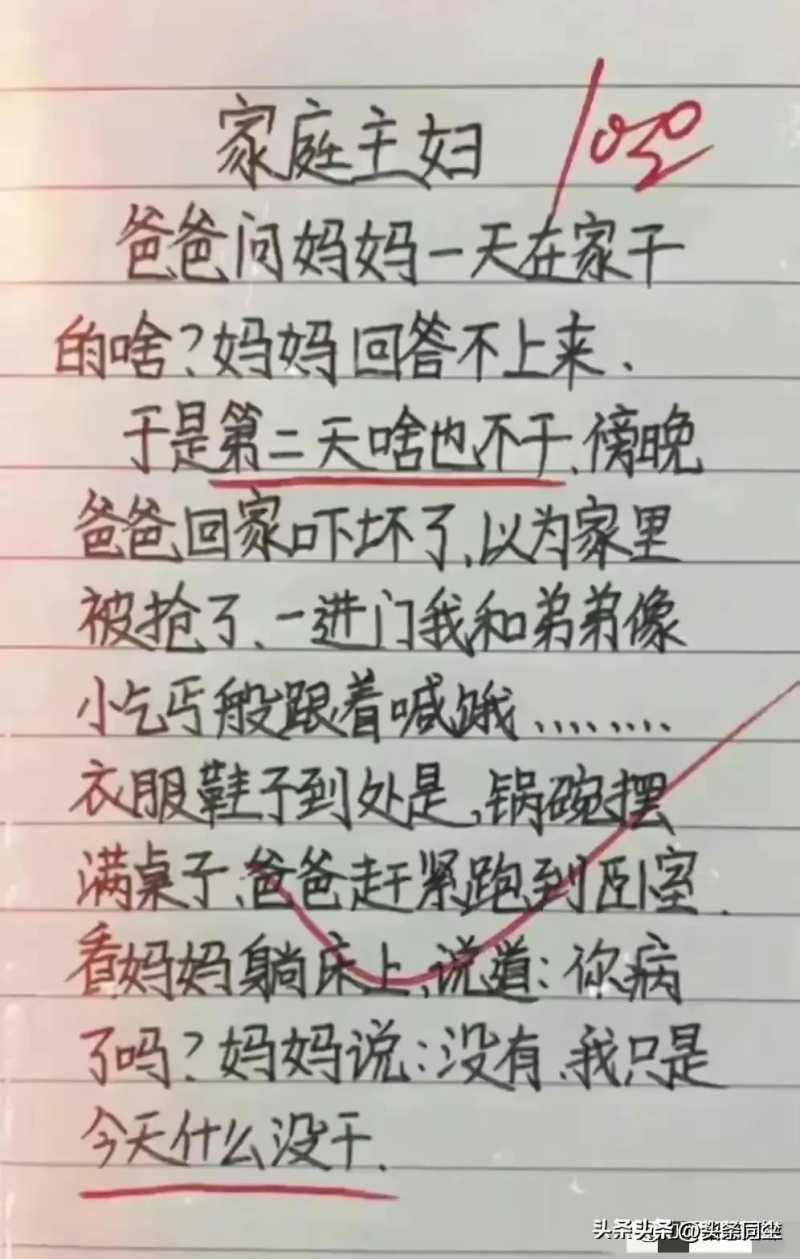 家庭主妇
100
爸爸问妈妈一天在家干
的啥?妈妈回答不上来.
于是第二天啥也不干、傍晚
爸爸回家吓坏了,以为家里
被抢了、一进门我和弟弟像
小乞丐般跟着喊饿........
衣服鞋子到处是,锅碗摆
满桌子,爸爸赶紧跑到卧室.
看妈妈躺床上,说道:你病
了吗?妈妈说:没有、我只是
今天什么没干.
头条@